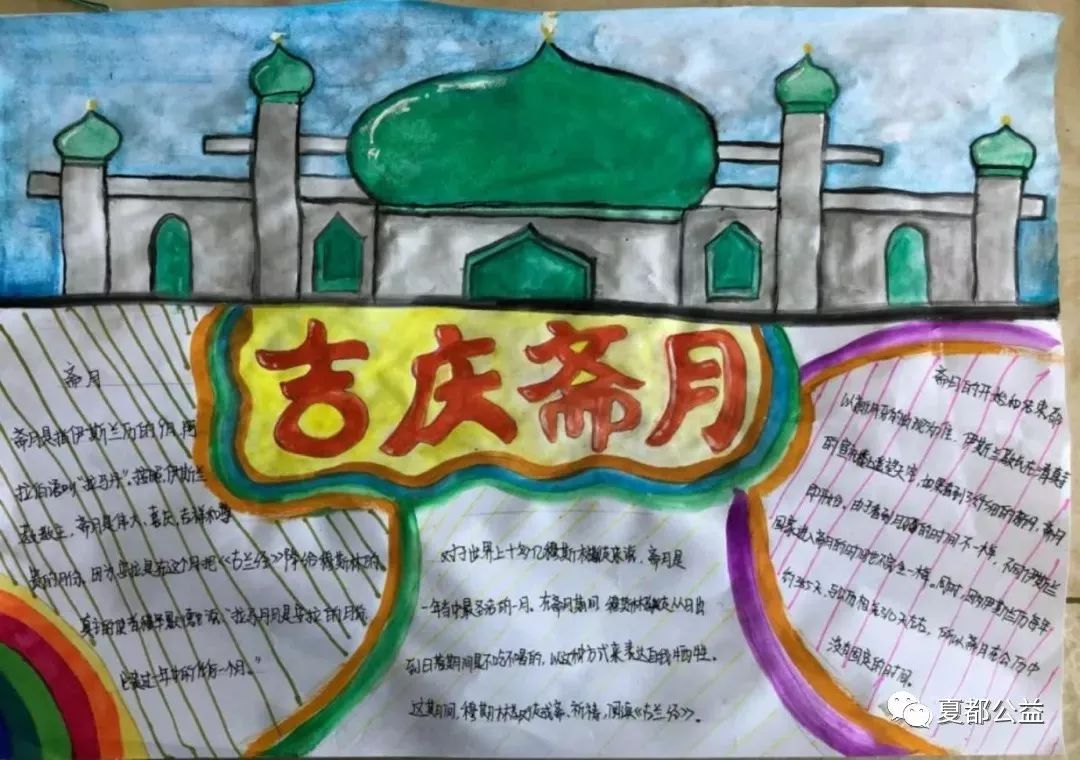 吉庆斋月
斋月
斋月是指伊斯兰历的9月,阿
拉伯语叫"拉马丹"。按照伊斯兰
教教义,斋月是伟大、喜庆、吉祥和尊
贵的月份,因为安拉是在这个月把《古兰经》降给穆斯林的。
真主的使者穆罕默德说:"拉马丹月是安拉的月份,
一年中的
一个月。"
对于世界上十多亿穆斯林教友来说,斋月是
一年当中最圣洁的一月。在斋月期间,穆斯林教友从日出
到日落期间是不吃不喝的,以这种方式来表达自我牺牲。
这期间,穆斯林教友戒荤、祈祷,阅读《古兰经》。
斋月的开始和结束都
以新月牙的出现为准,伊斯兰教长在清真寺
的宣礼楼遥望天空,如果看到了纤细的新月,斋月
即开始。由于看新月牙的时间不一样,不同伊斯兰
国家进入斋月的时间也不完全一样。同时,因为伊斯兰历每年
约355天,与公历相差10天左右,所以斋月在公历中
没有固定的时间。
夏都公益